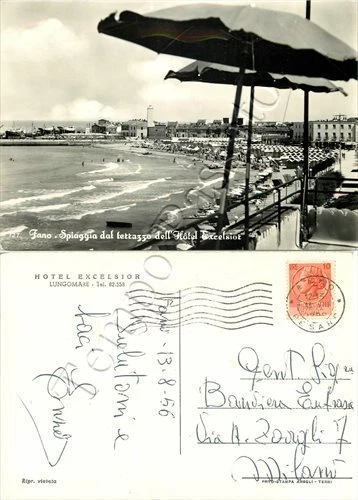 127. Fano - Spiaggia dal terrazzo dell'Hotel Excelsior
HOTEL EXCELSIOR
LUNGOMARE - Tel. 82.558
Fano 13-8-56
Saluti e
baci
10
PESARO
Gent. Sig.ra
Bandiera
Via A. Zarogli 7
Milano
Ripr. vietata
FOTO-STAMPA ANGELI - TERNI